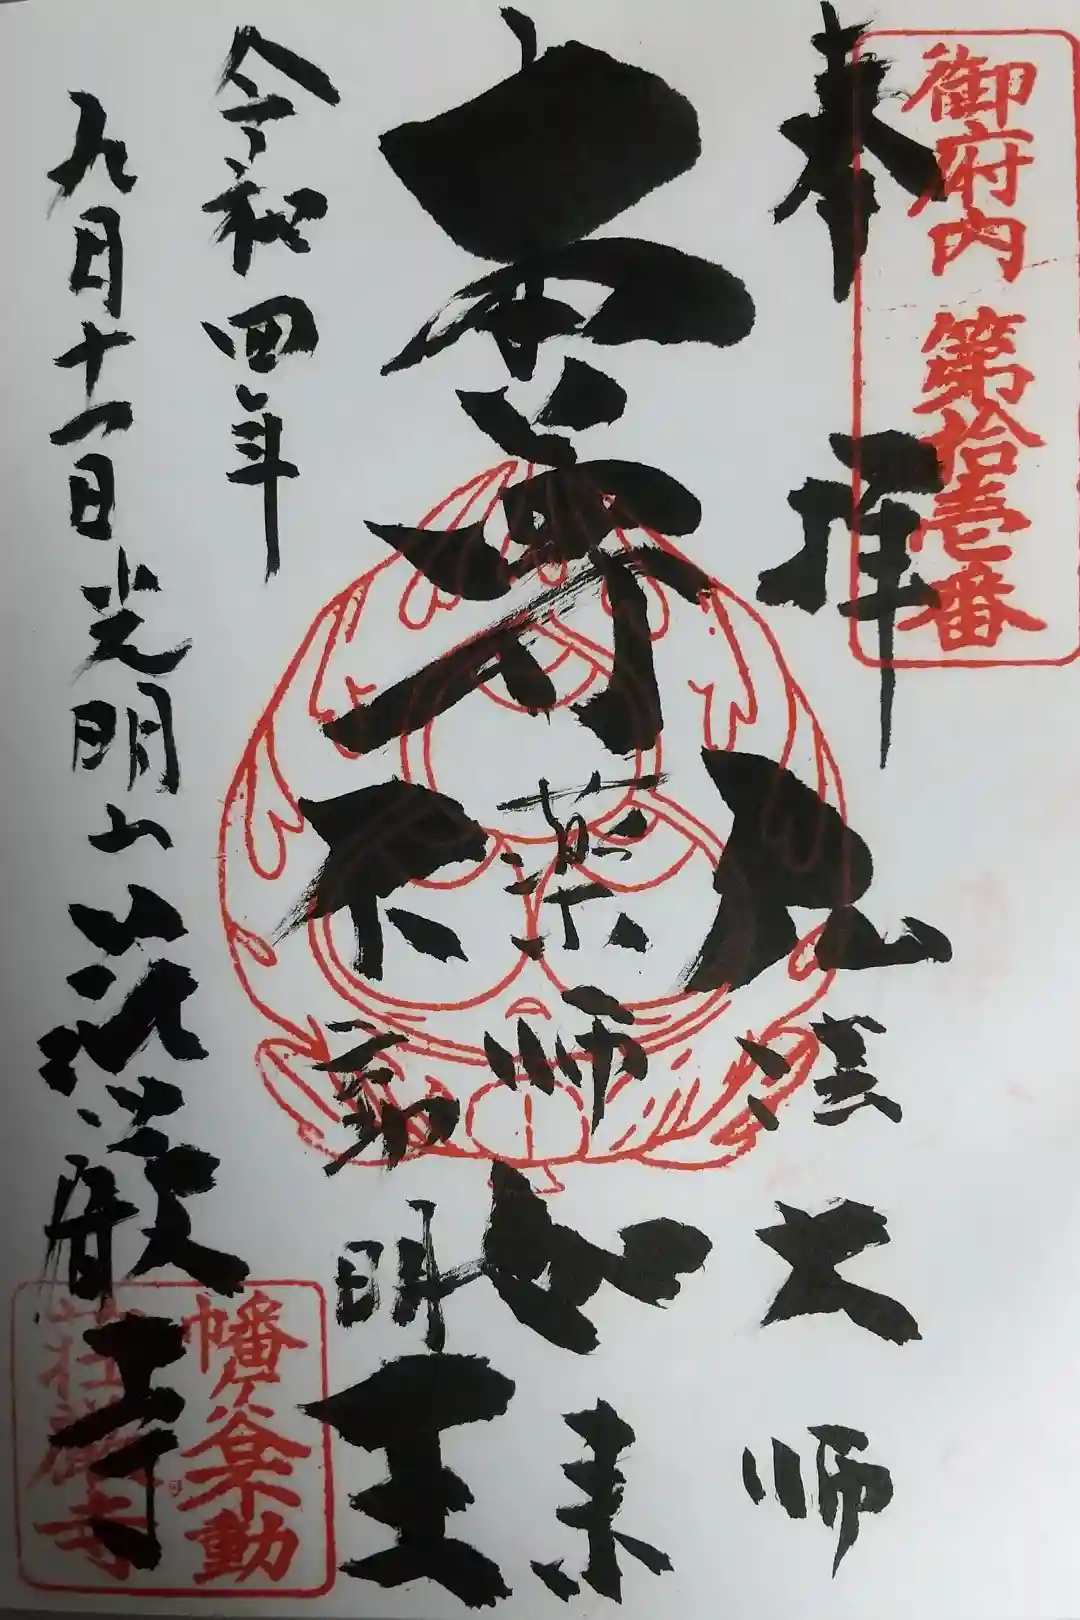 御府内 第拾壱番
奉拝
弘法大師
本尊
薬師如来
不動明王
令和四年
九月十一日 光明山 荘厳寺
幡ヶ谷不動
荘嚴寺